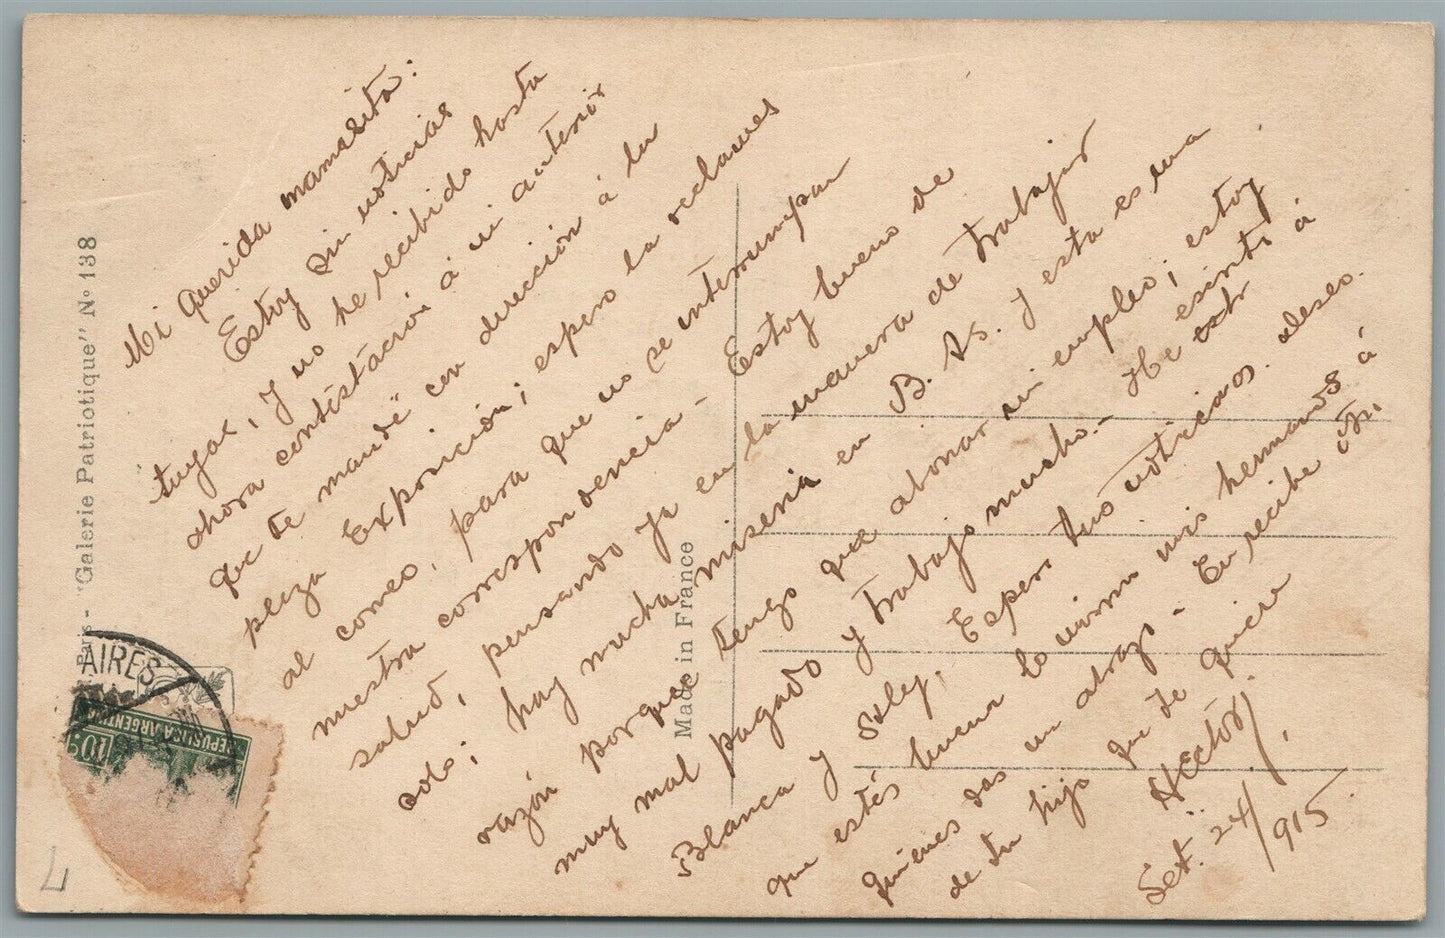 Mi Querida mamasita:
Estoy sin noticias
tuyas, y no he recibido hasta
ahora contestación á mi anterior
que te mandé con dirección á la
plaza Exposición; espero la reclames
al correo, para que no se interrumpan
nuestra correspondencia - Estoy bueno de
salud, pensando ya en la manera de trabajar
solo; hay mucha miseria en B. As. y esta es una
razón porque tengo que abonar mi empleo; estoy
muy mal pagado y trabajo mucho.- He escrito á
Blanca y Esperо tus noticias. deseo.
que estés buena lo mismo mis hermanos á
quienes das un abrazo - Tu recibe
de tu hijo que te quiere
Héctor
Set. 24/915.
Paris - "Galerie Patriotique" No 138
Made in France
AIRES
REPUBLICA ARGENTINA
10
L